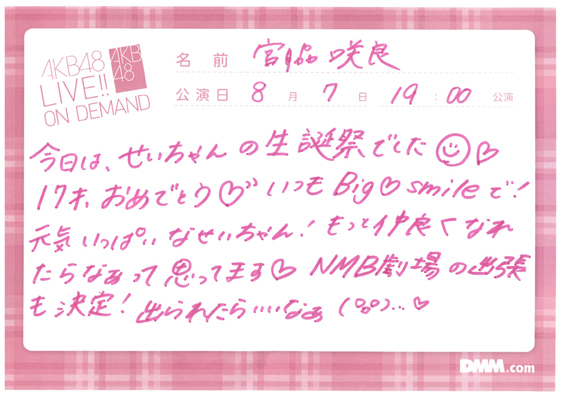 AKB48
LIVE!!
ON DEMAND
AKB
48
名前 宮脇咲良
公演日 8月7日 19:00 公演
今日は、せいちゃんの生誕祭でした☺♡
17才、おめでとう♡” いつもBig♡smileで!
元気いっぱいなせいちゃん!もっと仲良くなれ
たらなぁって思ってます♡ NMB劇場の出張
も決定!出られたらいいなぁ(°°)…♡
DMM.com